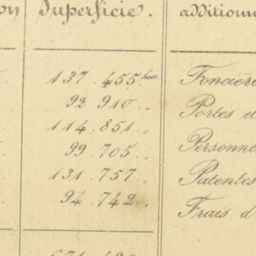 on Superficie. additionn
137.455 hect Foncière
92.910.. Portes e
114.851.. Personne
99.705.. Patentes
131.757..
94.742.. Frais d